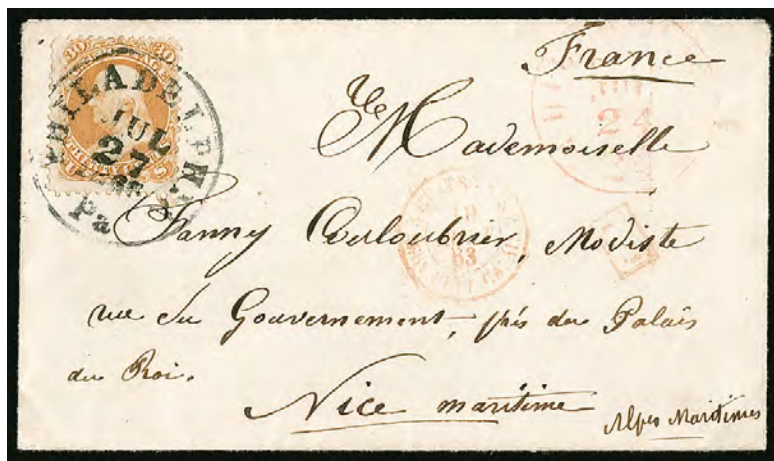 France
30 30
PHILADELPHIA
JUL
27
Pa
24
Mademoiselle
63
Fanny Couloubrier, Modiste
rue du Gouvernement, près du Palais
du Roi.
Nice maritime
Alpes Maritimes